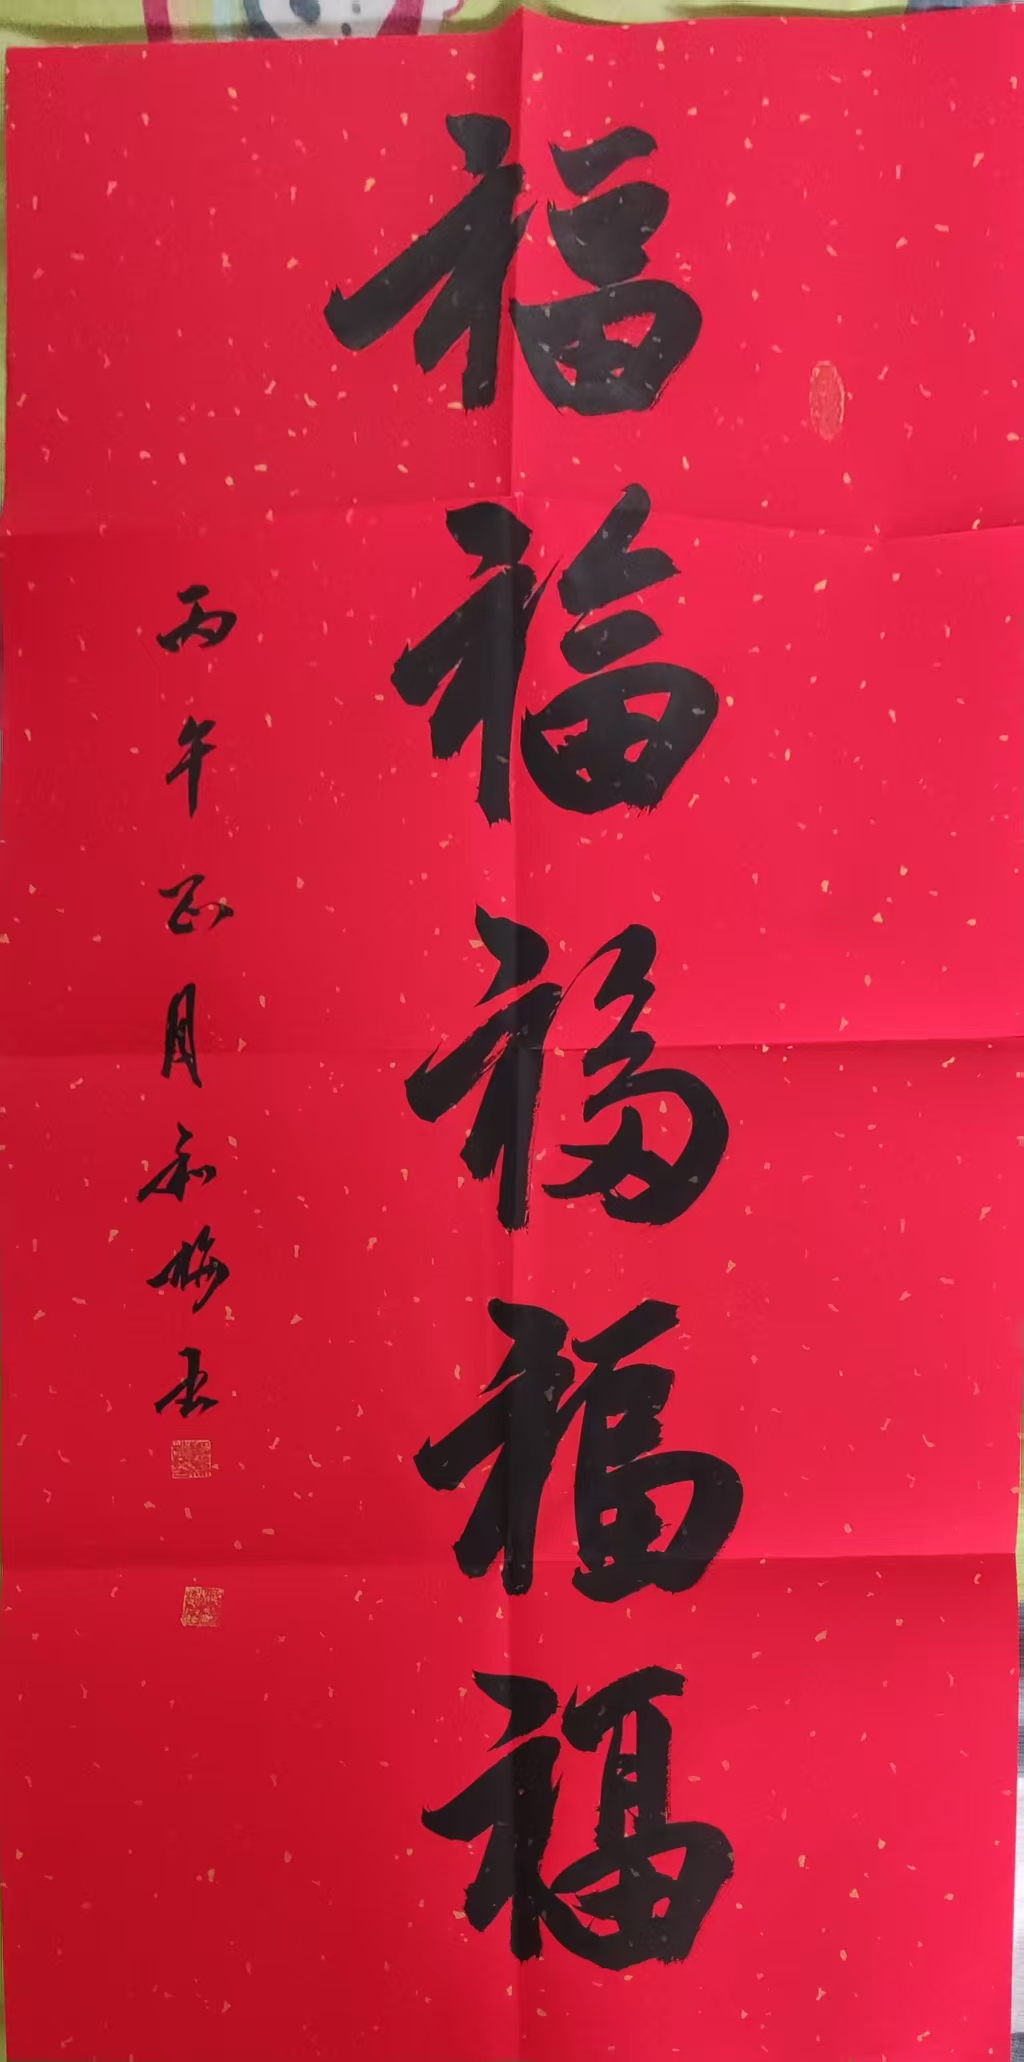 福福福福福
丙午正月和梅书